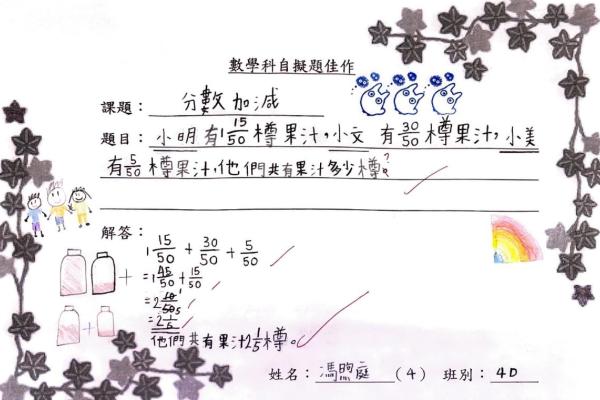 數學科自擬題佳作
課題：分數加減
題目：小明有1 15/50 樽果汁，小文有 30/50 樽果汁，小美
有 5/50 樽果汁，他們共有果汁多少樽？
解答：
1 15/50 + 30/50 + 5/50
=1 45/50 + 15/50
=2 10/50
=2 1/5
他們共有果汁2 1/5 樽。
姓名：馮煦庭 (4) 班別：4D